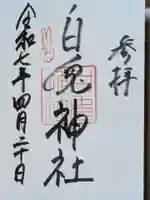 参拝
白兎神社
令和七年四月二十日